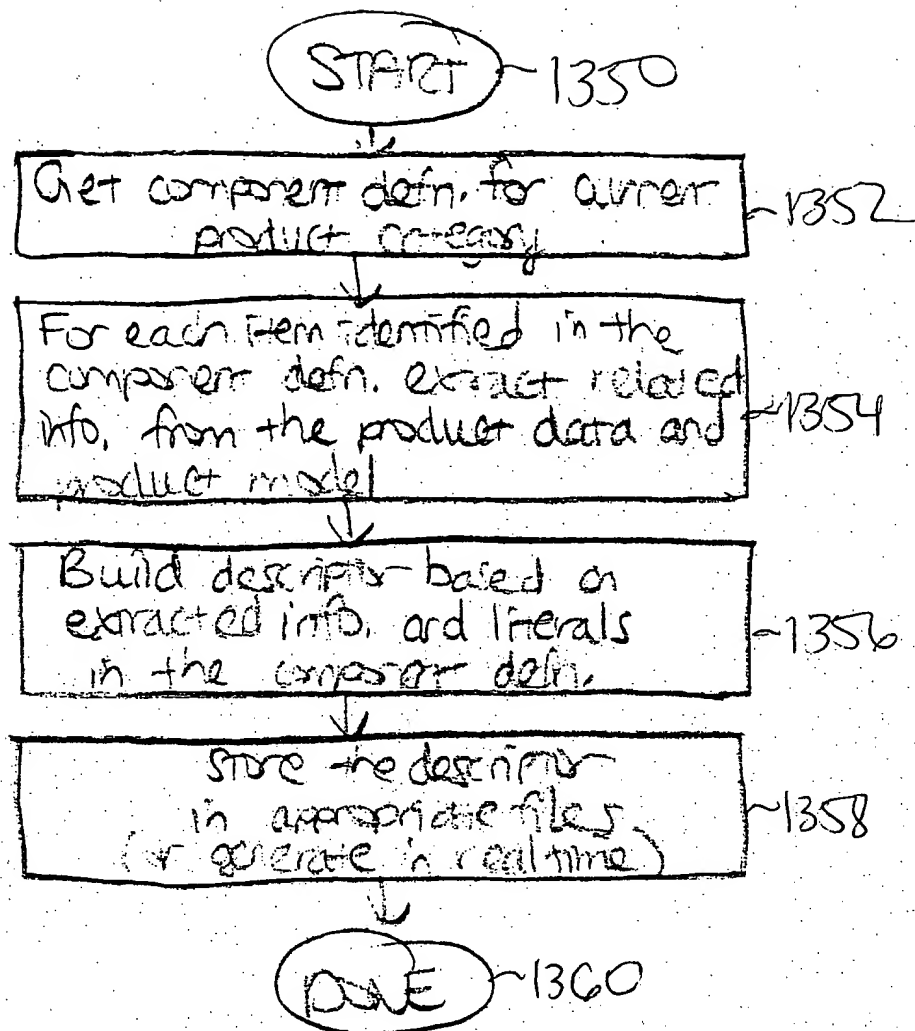 START ~1350
Get component defn. for current
product category ~1352
For each item identified in the
component defn. extract related
info. from the product data and ~1354
product model
Build descriptor based on
extracted info. and literals ~1356
in the component defn.
store the descriptor
in appropriate files ~1358
(or generate in real time)
DONE ~1360